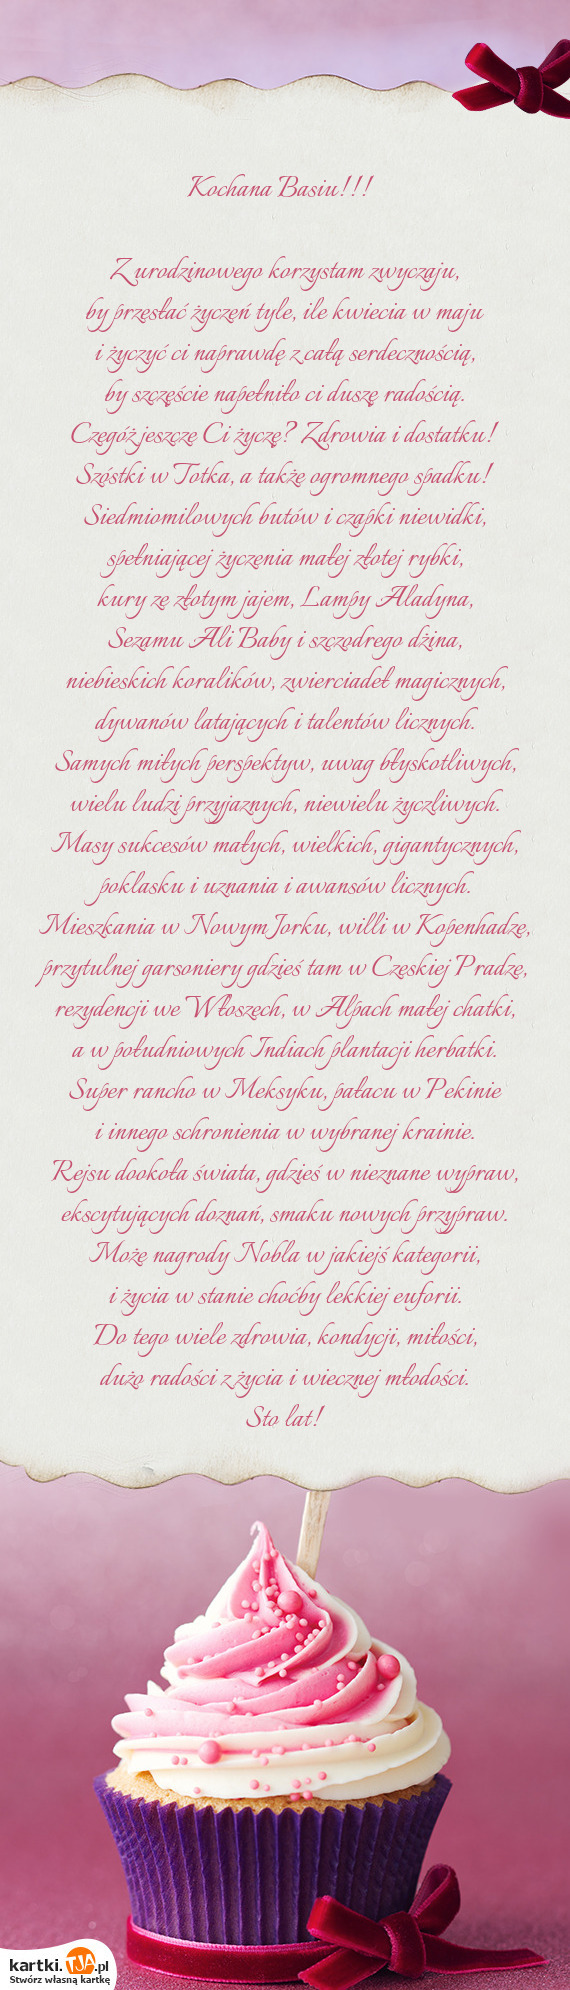 Kochana Basiu!!!
Z urodzinowego korzystam zwyczaju,
by przesłać życzeń tyle, ile kwiecia w maju
i życzyć ci naprawdę z całą serdecznością,
by szczęście napełniło ci duszę radością.
Czegóż jeszcze Ci życzę? Zdrowia i dostatku!
Szóstki w Totka, a także ogromnego spadku!
Siedmiomilowych butów i czapki niewidki,
spełniającej życzenia małej złotej rybki,
kury ze złotym jajem, Lampy Aladyna,
Sezamu Ali Baby i szczodrego dżina,
niebieskich koralików, zwierciadeł magicznych,
dywanów latających i talentów licznych.
Samych miłych perspektyw, uwag błyskotliwych,
wielu ludzi przyjaznych, niewielu życzliwych.
Masy sukcesów małych, wielkich, gigantycznych,
poklasku i uznania i awansów licznych.
Mieszkania w Nowym Jorku, willi w Kopenhadze,
przytulnej garsoniery gdzieś tam w Czeskiej Pradze,
rezydencji we Włoszech, w Alpach małej chatki,
a w południowych Indiach plantacji herbatki.
Super rancho w Meksyku, pałacu w Pekinie
i innego schronienia w wybranej krainie.
Rejsu dookoła świata, gdzieś w nieznane wypraw,
ekscytujących doznań, smaku nowych przypraw.
Może nagrody Nobla w jakiejś kategorii,
i życia w stanie choćby lekkiej euforii.
Do tego wiele zdrowia, kondycji, miłości,
dużo radości z życia i wiecznej młodości.
Sto lat!
kartki.TJA.pl
Stwórz własną kartkę